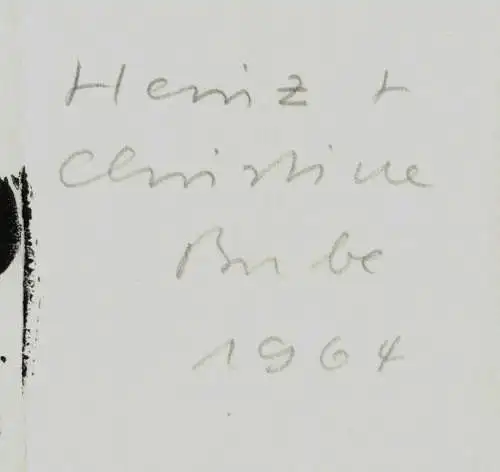 Heinz +
Christine
Bube
1964